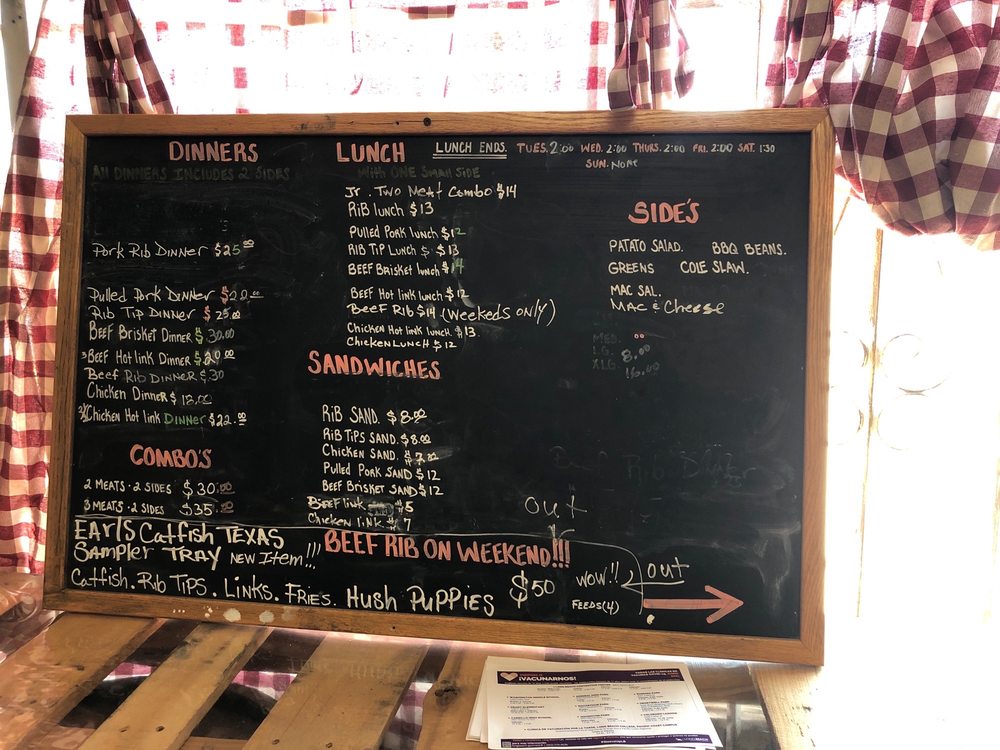 DINNERS
All DINNERS INCLUDES 2 SIDES
Pork Rib Dinner $25.00
Pulled Pork DINNER $22.00
Rib Tip DINNER $25.00
Beef Brisket Dinner $30.00
Beef Hot link Dinner $20.00
Beef Rib DINNER $30
Chicken Dinner $12.00
Chicken Hot link DINNER $22.00
COMBO'S
2 MEATS · 2 SIDES $30.00
3 MEATS · 2 SIDES $35.00
LUNCH
With ONE Small SIDE
Jr. Two Meat Combo $14
RiB lunch $13
Pulled Pork lunch $12
RIB TIP LUNCH $13
BEEF BRisket lunch $14
BEEF Hot link lunch $12
BeeF Rib $14 (Weekeds only)
Chicken Hot link lunch $13
Chicken LUNCH $12
SANDWICHES
RiB SAND. $8.00
RiB TiPS SAND. $8.00
Chicken SAND. $7.00
Pulled Pork SAND $12
BeeF Brisket SAND $12
BeeF link $5
Chicken link $7
LUNCH ENDS. TUES. 2:00 WED. 2:00 THURS. 2:00 FRI. 2:00 SAT. 1:30
SUN.
SIDE'S
PATATO SALAD. BBQ BEANS.
GREENS COLE SLAW.
MAC SAL.
MAC & CHEESE
MED.
LG. 8.00
XLG. 16.00
Rib Dinner
out
EARLS Catfish TEXAS
SAMPLER TRAY NEW ITEM!!!
Catfish. Rib Tips. Links. Fries. Hush PuPPies $50
BEEF RIB ON WEEKEND!!!
WOW!! out
FEEDS(4)
¡VACUNARNOS!